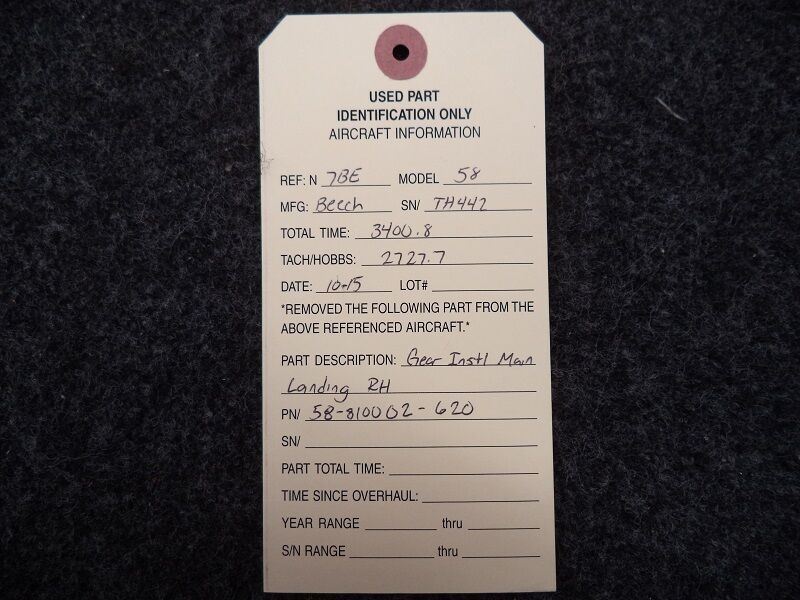 USED PART
IDENTIFICATION ONLY
AIRCRAFT INFORMATION
REF: N 7BE MODEL 58
MFG: Beech SN/ TH442
TOTAL TIME: 3400.8
TACH/HOBBS: 2727.7
DATE: 10-15 LOT#
*REMOVED THE FOLLOWING PART FROM THE
ABOVE REFERENCED AIRCRAFT.*
PART DESCRIPTION: Gear Instl Main
Landing RH
PN/ 58-810002-620
SN/
PART TOTAL TIME:
TIME SINCE OVERHAUL:
YEAR RANGE thru
S/N RANGE thru